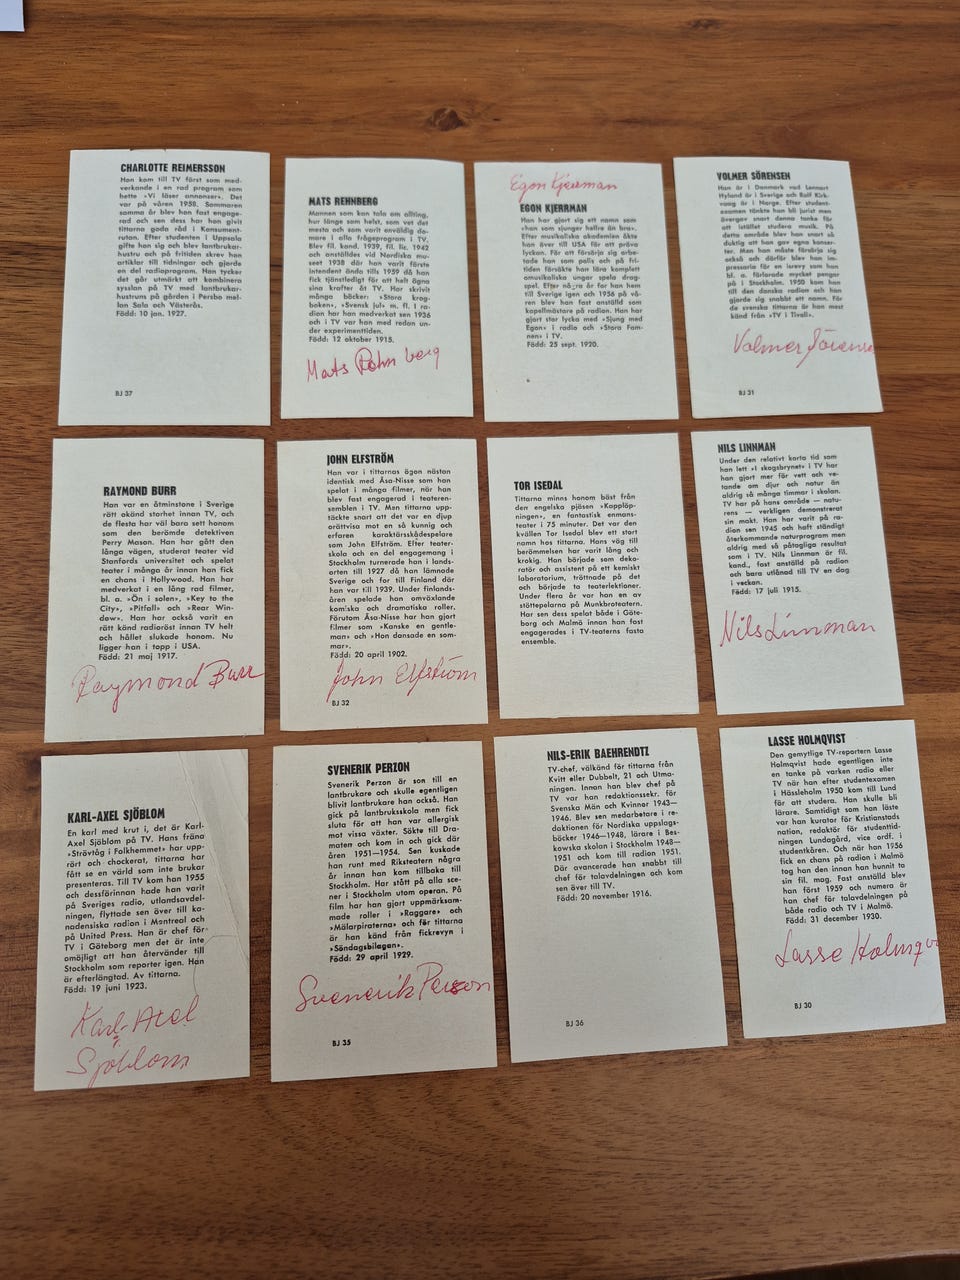 CHARLOTTE REIMERSSON
Hon kom till TV först som med-
verkande i en rad program som
hette »Vi läser annonser». Det
var på våren 1958. Sommaren
samma år blev hon fast engage-
rad och sen dess har hon givit
tittarna goda råd i Konsument-
rutan. Efter studenten i Uppsala
gifte hon sig och blev lantbrukar-
hustru och på fritiden skrev hon
artiklar till tidningar och gjorde
en del radioprogram. Hon tycker
det går utmärkt att kombinera
sysslan på TV med lantbrukar-
hustruns på gården i Persbo mel-
lan Sala och Västerås.
Född: 10 jan. 1927.
BJ 37
MATS REHNBERG
Mannen som kan tala om allting,
hur länge som helst, som vet det
mesta och som varit envåldig do-
mare i alla frågeprogram i TV.
Blev fil. kand. 1939, fil. lic. 1942
och anställdes vid Nordiska mu-
seet 1938 där han varit förste
intendent ända tills 1959 då han
fick tjänstledigt för att helt ägna
sina krafter åt TV. Har skrivit
många böcker: »Stora krog-
boken», »Svensk jul» m. fl. I ra-
dion har han medverkat sen 1936
och i TV var han med redan un-
der experimenttiden.
Född: 12 oktober 1915.
Mats Rehnberg
Egon Kjerrman
EGON KJERRMAN
Han har gjort sig ett namn som
»han som sjunger hellre än bra».
Efter musikaliska akademien åkte
han över till USA för att pröva
lyckan. För att försörja sig arbe-
tade han som polis och på fri-
tiden försökte han lära komplett
omusikaliska ungar spela drag-
spel. Efter några år for han hem
till Sverige igen och 1956 på vå-
ren blev han fast anställd som
kapellmästare på radion. Han har
gjort stor lycka med »Sjung med
Egon» i radio och »Stora Fam-
nen» i TV.
Född: 25 sept. 1920.
VOLMER SÖRENSEN
Han är i Danmark vad Lennart
Hyland är i Sverige och Rolf Kirk-
vaag är i Norge. Efter student-
examen tänkte han bli jurist men
övergav snart denna tanke för
att istället studera musik. På
detta område blev han snart så
duktig att han gav egna konser-
ter. Men man måste försörja sig
också och därför blev han im-
pressario för en isrevy som han
bl. a. förlorade mycket pengar
på i Stockholm. 1950 kom han
till den danska radion och han
gjorde sig snabbt ett namn. För
de svenska tittarna är han mest
känd från »TV i Tivoli».
Volmer Sörensen
BJ 31
RAYMOND BURR
Han var en åtminstone i Sverige
rätt okänd storhet innan TV, och
de flesta har väl bara sett honom
som den berömde detektiven
Perry Mason. Han har gått den
långa vägen, studerat teater vid
Stanfords universitet och spelat
teater i många år innan han fick
en chans i Hollywood. Han har
medverkat i en lång rad filmer,
bl. a. »Ön i solen», »Key to the
City», »Pitfall» och »Rear Win-
dow». Han har också varit en
rätt känd radioröst innan TV helt
och hållet slukade honom. Nu
ligger han i topp i USA.
Född: 21 maj 1917.
Raymond Burr
JOHN ELFSTRÖM
Han var i tittarnas ögon nästan
identisk med Åsa-Nisse som han
spelat i många filmer, när han
blev fast engagerad i teateren-
semblen i TV. Men tittarna upp-
täckte snart att det var en djup
orättvisa mot en så kunnig och
erfaren karaktärsskådespelare
som John Elfström. Efter teater-
skola och en del engagemang i
Stockholm turnerade han i lands-
orten till 1927 då han lämnade
Sverige och for till Finland där
han var till 1939. Under finlands-
åren spelade han omväxlande
komiska och dramatiska roller.
Förutom Åsa-Nisse har han gjort
filmer som »Kanske en gentle-
man» och »Hon dansade en som-
mar».
Född: 20 april 1902.
John Elfström
BJ 32
TOR ISEDAL
Tittarna minns honom bäst från
den engelska pjäsen »Kapplöp-
ningen», en fantastisk enmans-
teater i 75 minuter. Det var den
kvällen Tor Isedal blev ett stort
namn hos tittarna. Hans väg till
berömmelsen har varit lång och
krokig. Han började som deko-
ratör och assistent på ett kemiskt
laboratorium, tröttnade på det
och började ta teaterlektioner.
Under flera år var han en av
stöttepelarna på Munkbroteatern.
Har sen dess spelat både i Göte-
borg och Malmö innan han fast
engagerades i TV-teaterns fasta
ensemble.
NILS LINNMAN
Under den relativt korta tid som
han lett »I skogsbrynet» i TV har
han gjort mer för vett och ve-
tande om djur och natur än
aldrig så många timmar i skolan.
TV har på hans område — natu-
rens — verkligen demonstrerat
sin makt. Han har varit på ra-
dion sen 1945 och haft ständigt
återkommande naturprogram men
aldrig med så påtagliga resultat
som i TV. Nils Linnman är fil.
kand., fast anställd på radion
och bara utlånad till TV en dag
i veckan.
Född: 17 juli 1915.
Nils Linnman
KARL-AXEL SJÖBLOM
En karl med krut i, det är Karl-
Axel Sjöblom på TV. Hans fräna
»Strövtåg i Folkhemmet» har upp-
rört och chockerat, tittarna har
fått se en värld som inte brukar
presenteras. Till TV kom han 1955
och dessförinnan hade han varit
på Sveriges radio, utlandsavdel-
ningen, flyttade sen över till ka-
nadensiska radion i Montreal och
på United Press. Han är chef för
TV i Göteborg men det är inte
omöjligt att han återvänder till
Stockholm som reporter igen. Han
är efterlängtad. Av tittarna.
Född: 19 juni 1923.
Karl-Axel
Sjöblom
SVENERIK PERZON
Svenerik Perzon är son till en
lantbrukare och skulle egentligen
blivit lantbrukare han också. Han
gick på lantbruksskola men fick
sluta för att han var allergisk
mot vissa växter. Sökte till Dra-
maten och kom in och gick där
åren 1951—1954. Sen kuskade
han runt med Riksteatern några
år innan han kom tillbaka till
Stockholm. Har stått på alla sce-
ner i Stockholm utom operan. På
film har han gjort uppmärksam-
made roller i »Raggare» och
»Mälarpiraterna» och för tittarna
är han känd från fickrevyn i
»Söndagsbilagan».
Född: 29 april 1929.
Svenerik Perzon
BJ 35
NILS-ERIK BAEHRENDTZ
TV-chef, välkänd för tittarna från
Kvitt eller Dubbelt, 21 och Utma-
ningen. Innan han blev chef på
TV var han redaktionssekr. för
Svenska Män och Kvinnor 1943—
1946. Blev sen medarbetare i re-
daktionen för Nordiska uppslags-
böcker 1946—1948, lärare i Bes-
kowska skolan i Stockholm 1948—
1951 och kom till radion 1951.
Där avancerade han snabbt till
chef för talavdelningen och kom
sen över till TV.
Född: 20 november 1916.
BJ 36
LASSE HOLMQVIST
Den gemytlige TV-reportern Lasse
Holmqvist hade egentligen inte
en tanke på varken radio eller
TV när han efter studentexamen
i Hässleholm 1950 kom till Lund
för att studera. Han skulle bli
lärare. Samtidigt som han läste
var han kurator för Kristianstads
nation, redaktör för studenttid-
ningen Lundagård, vice ordf. i
studentkåren. Och när han 1956
fick en chans på radion i Malmö
tog han den innan han hunnit ta
sin fil. mag. Fast anställd blev
han först 1959 och numera är
han chef för talavdelningen på
både radio och TV i Malmö.
Född: 31 december 1930.
Lasse Holmqv
BJ 30